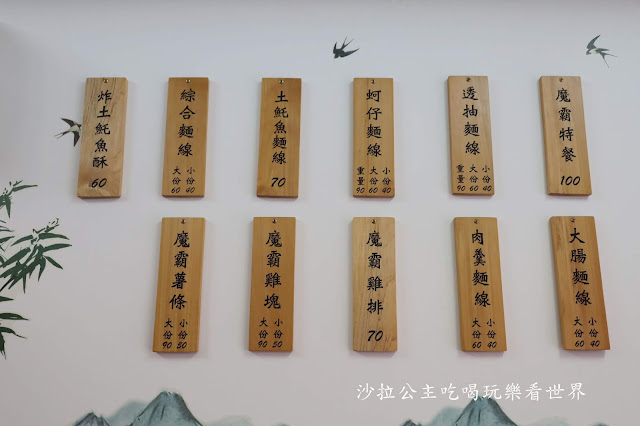 炸土魠魚酥
60
綜合麵線
大份60
小份40
土魠魚麵線
70
蚵仔麵線
重量90
大份60
小份40
透抽麵線
重量90
大份60
小份40
魔霸特餐
100
魔霸薯條
大份90
小份50
魔霸雞塊
大份90
小份50
魔霸雞排
70
肉羹麵線
大份60
小份40
大腸麵線
大份60
小份40
沙拉公主吃喝玩樂看世界